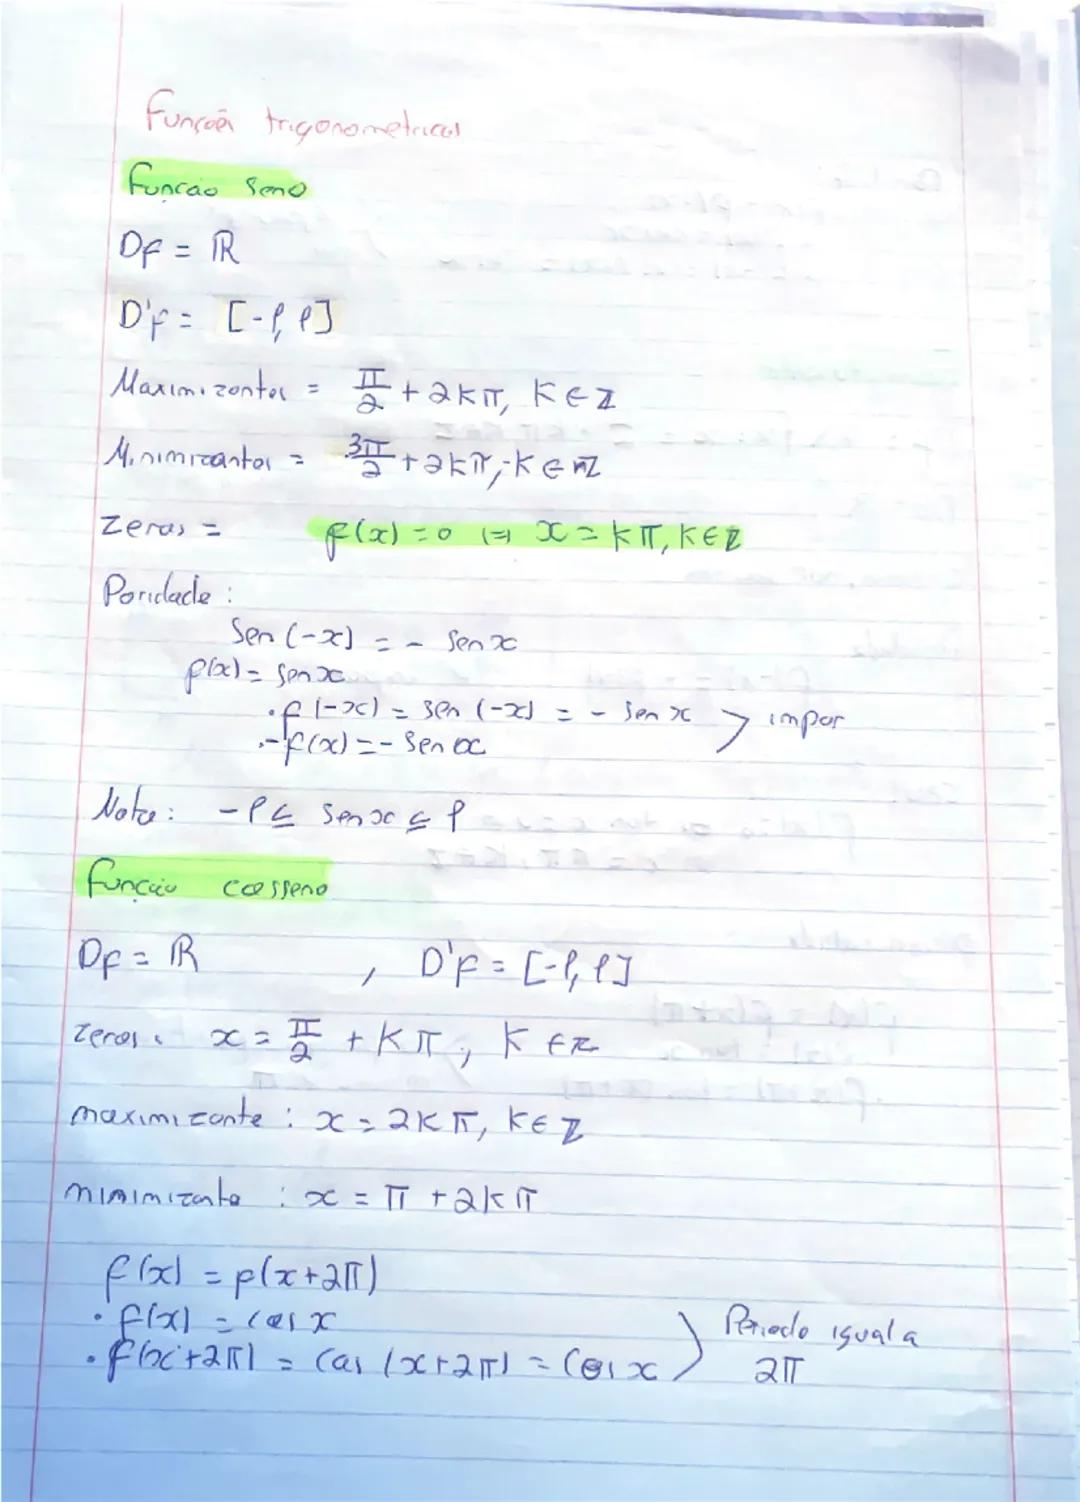 Funções trigonometricas
Função Seno
Df = ℝ
D'f = [-1, 1]
Maximizantes = π/2 + 2kπ, K ∈ ℤ
Minimizantes = 3π/2 + 2kπ, K ∈ ℤ
Zeros = f(x) = 0 (=) x = kπ, K ∈ ℤ
Paridade :
Sen (-x) = - Sen x
f(x) = sen x
. f(-x) = sen (-x) = - sen x > impar
. - f(x) = - Sen x
Nota : -1 ≤ sen x ≤ 1
Função cosseno
Df = ℝ , D'f = [-1, 1]
Zeros : x = π/2 + Kπ, K ∈ ℤ
maximizante : x = 2Kπ, K ∈ ℤ
minimizante : x = π + 2kπ
f(x) = f(x+2π)
. f(x) = cos x
. f(x+2π) = Cos (x+2π) = Cos x ) Periodo igual a
2π